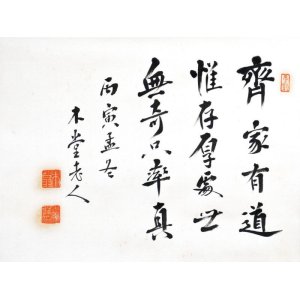 齊家有道
惟存厚處世
無奇只率真
丙寅孟冬
木堂老人